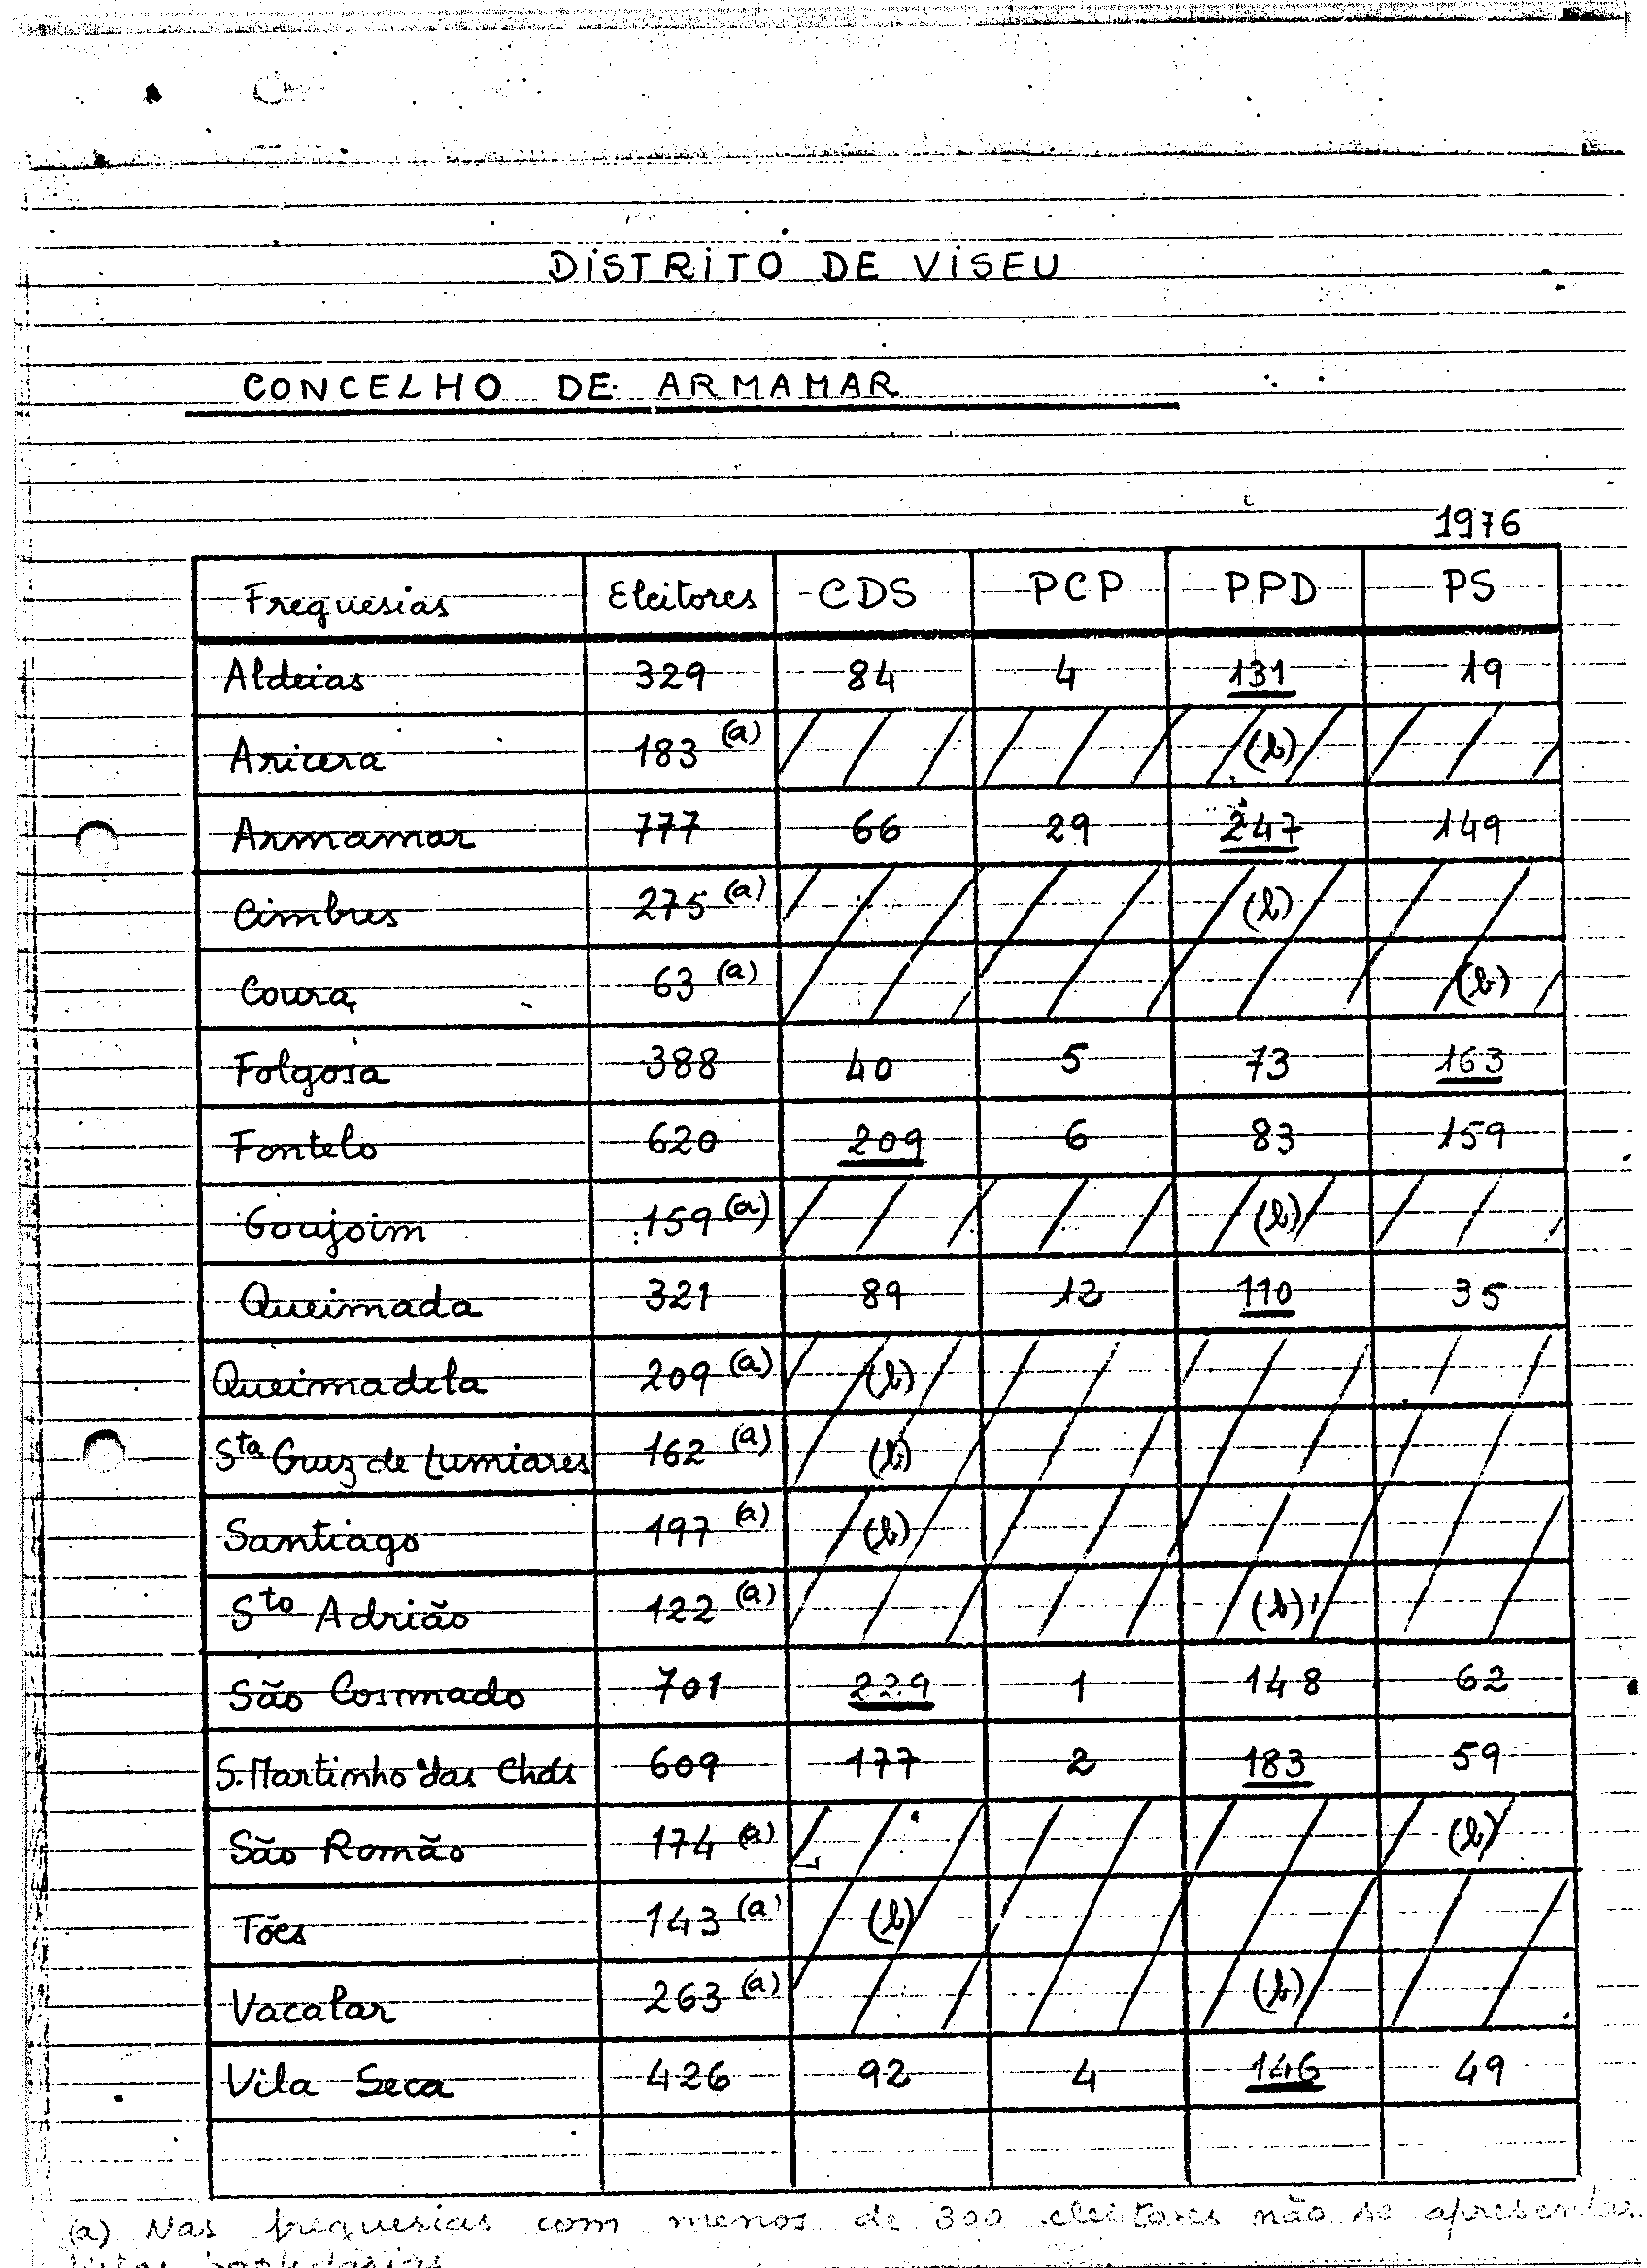 DISTRITO DE VISEU
CONCELHO DE ARMAMAR
1976
Freguesias Eleitores CDS PCP PPD PS
Aldeias 329 84 4 131 19
Aricera 183 (a) (b)
Armamar 777 66 29 247 149
Cimbres 275 (a) (b)
Coura 63 (a) (b)
Folgosa 388 40 5 73 163
Fontelo 620 209 6 83 159
Goujoim 159 (a) (b)
Queimada 321 89 12 110 35
Queimadela 209 (a) (b)
Sta Cruz de Lumiares 162 (a) (b)
Santiago 197 (a) (b)
Sto Adrião 122 (a) (b)
São Cosmado 701 229 1 148 62
S. Martinho das Chãs 609 177 2 183 59
São Romão 174 (a) (b)
Tões 143 (a) (b)
Vacalar 263 (a) (b)
Vila Seca 426 92 4 146 49
(a) Nas freguesias com menos de 300 eleitores não se